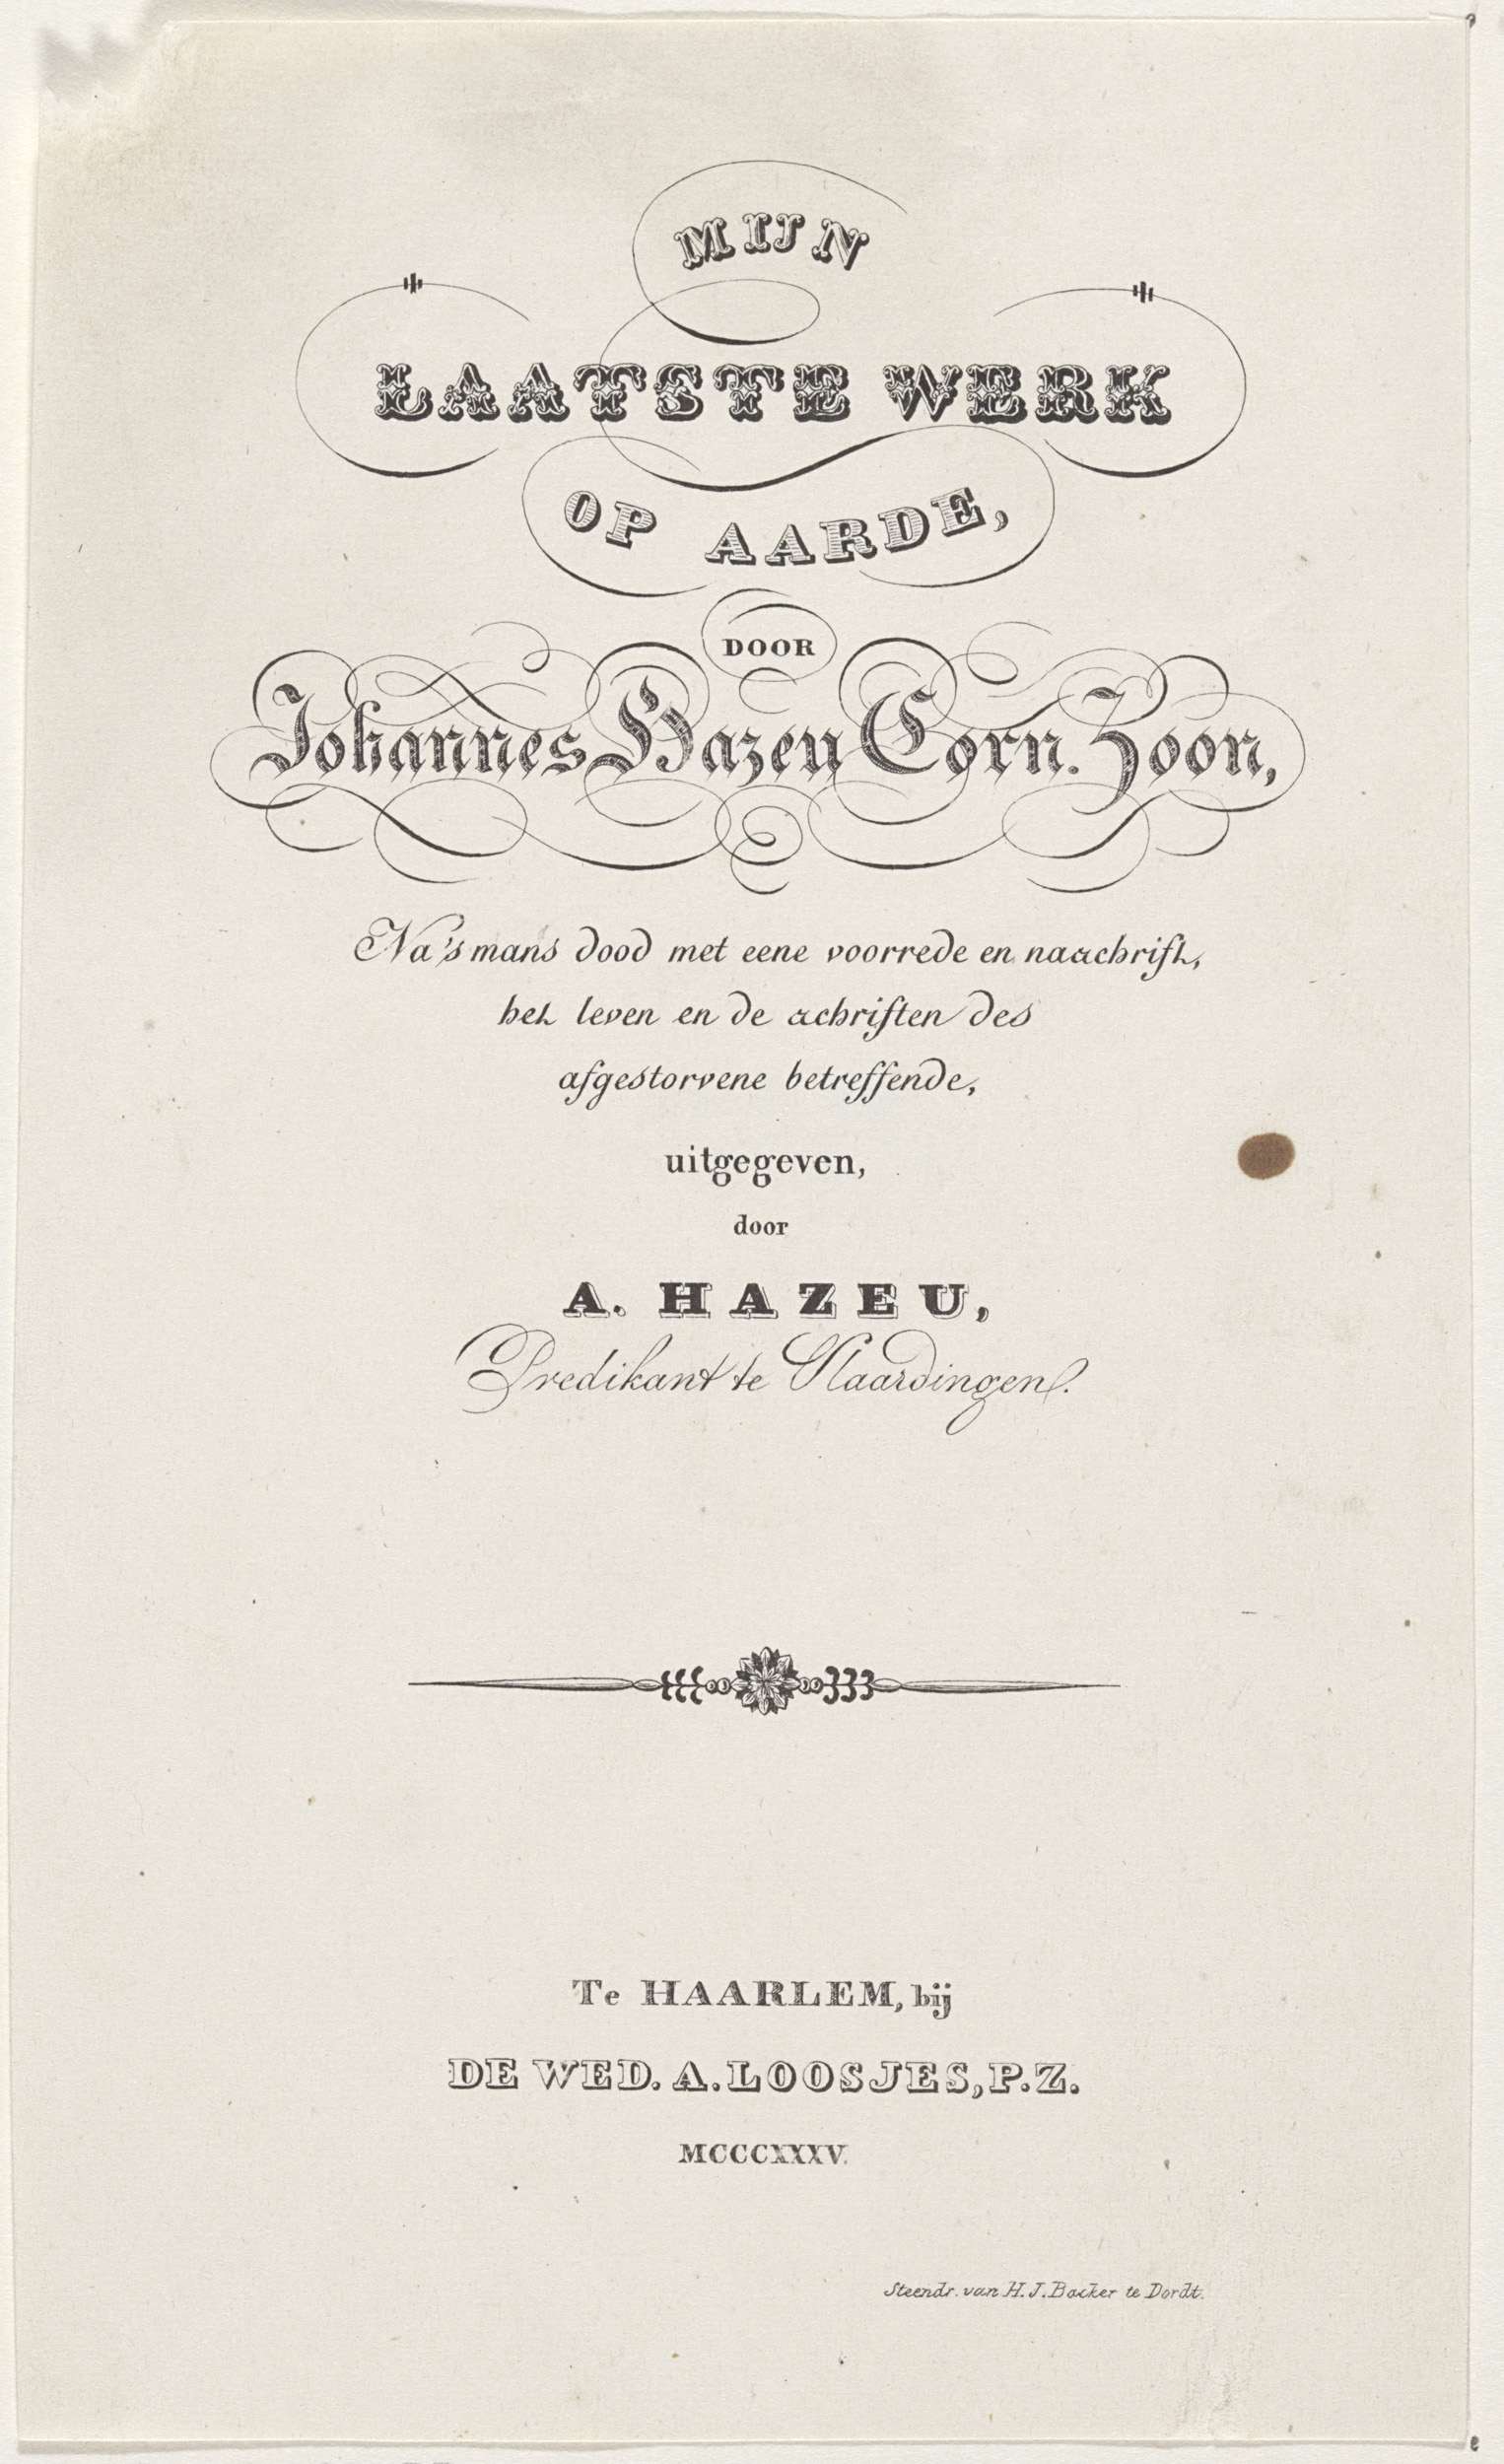 MIJN
LAATSTE WERK
OP AARDE,
DOOR
Johannes Hazeu Corn. Zoon,
Na's mans dood met eene voorrede en naschrift,
het leven en de schriften des
afgestorvene betreffende,
uitgegeven,
door
A. HAZEU,
Predikant te Vlaardingen.
Te HAARLEM, bij
DE WED. A. LOOSJES, P.Z.
MCCCXXXV.
Steendr. van H. J. Backer te Dordt.